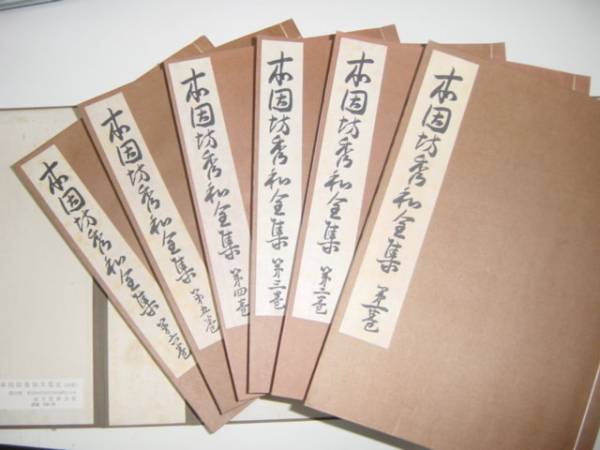 本因坊秀和全集 第六巻
本因坊秀和全集 第五巻
本因坊秀和全集 第四巻
本因坊秀和全集 第三巻
本因坊秀和全集 第二巻
本因坊秀和全集 第壱巻